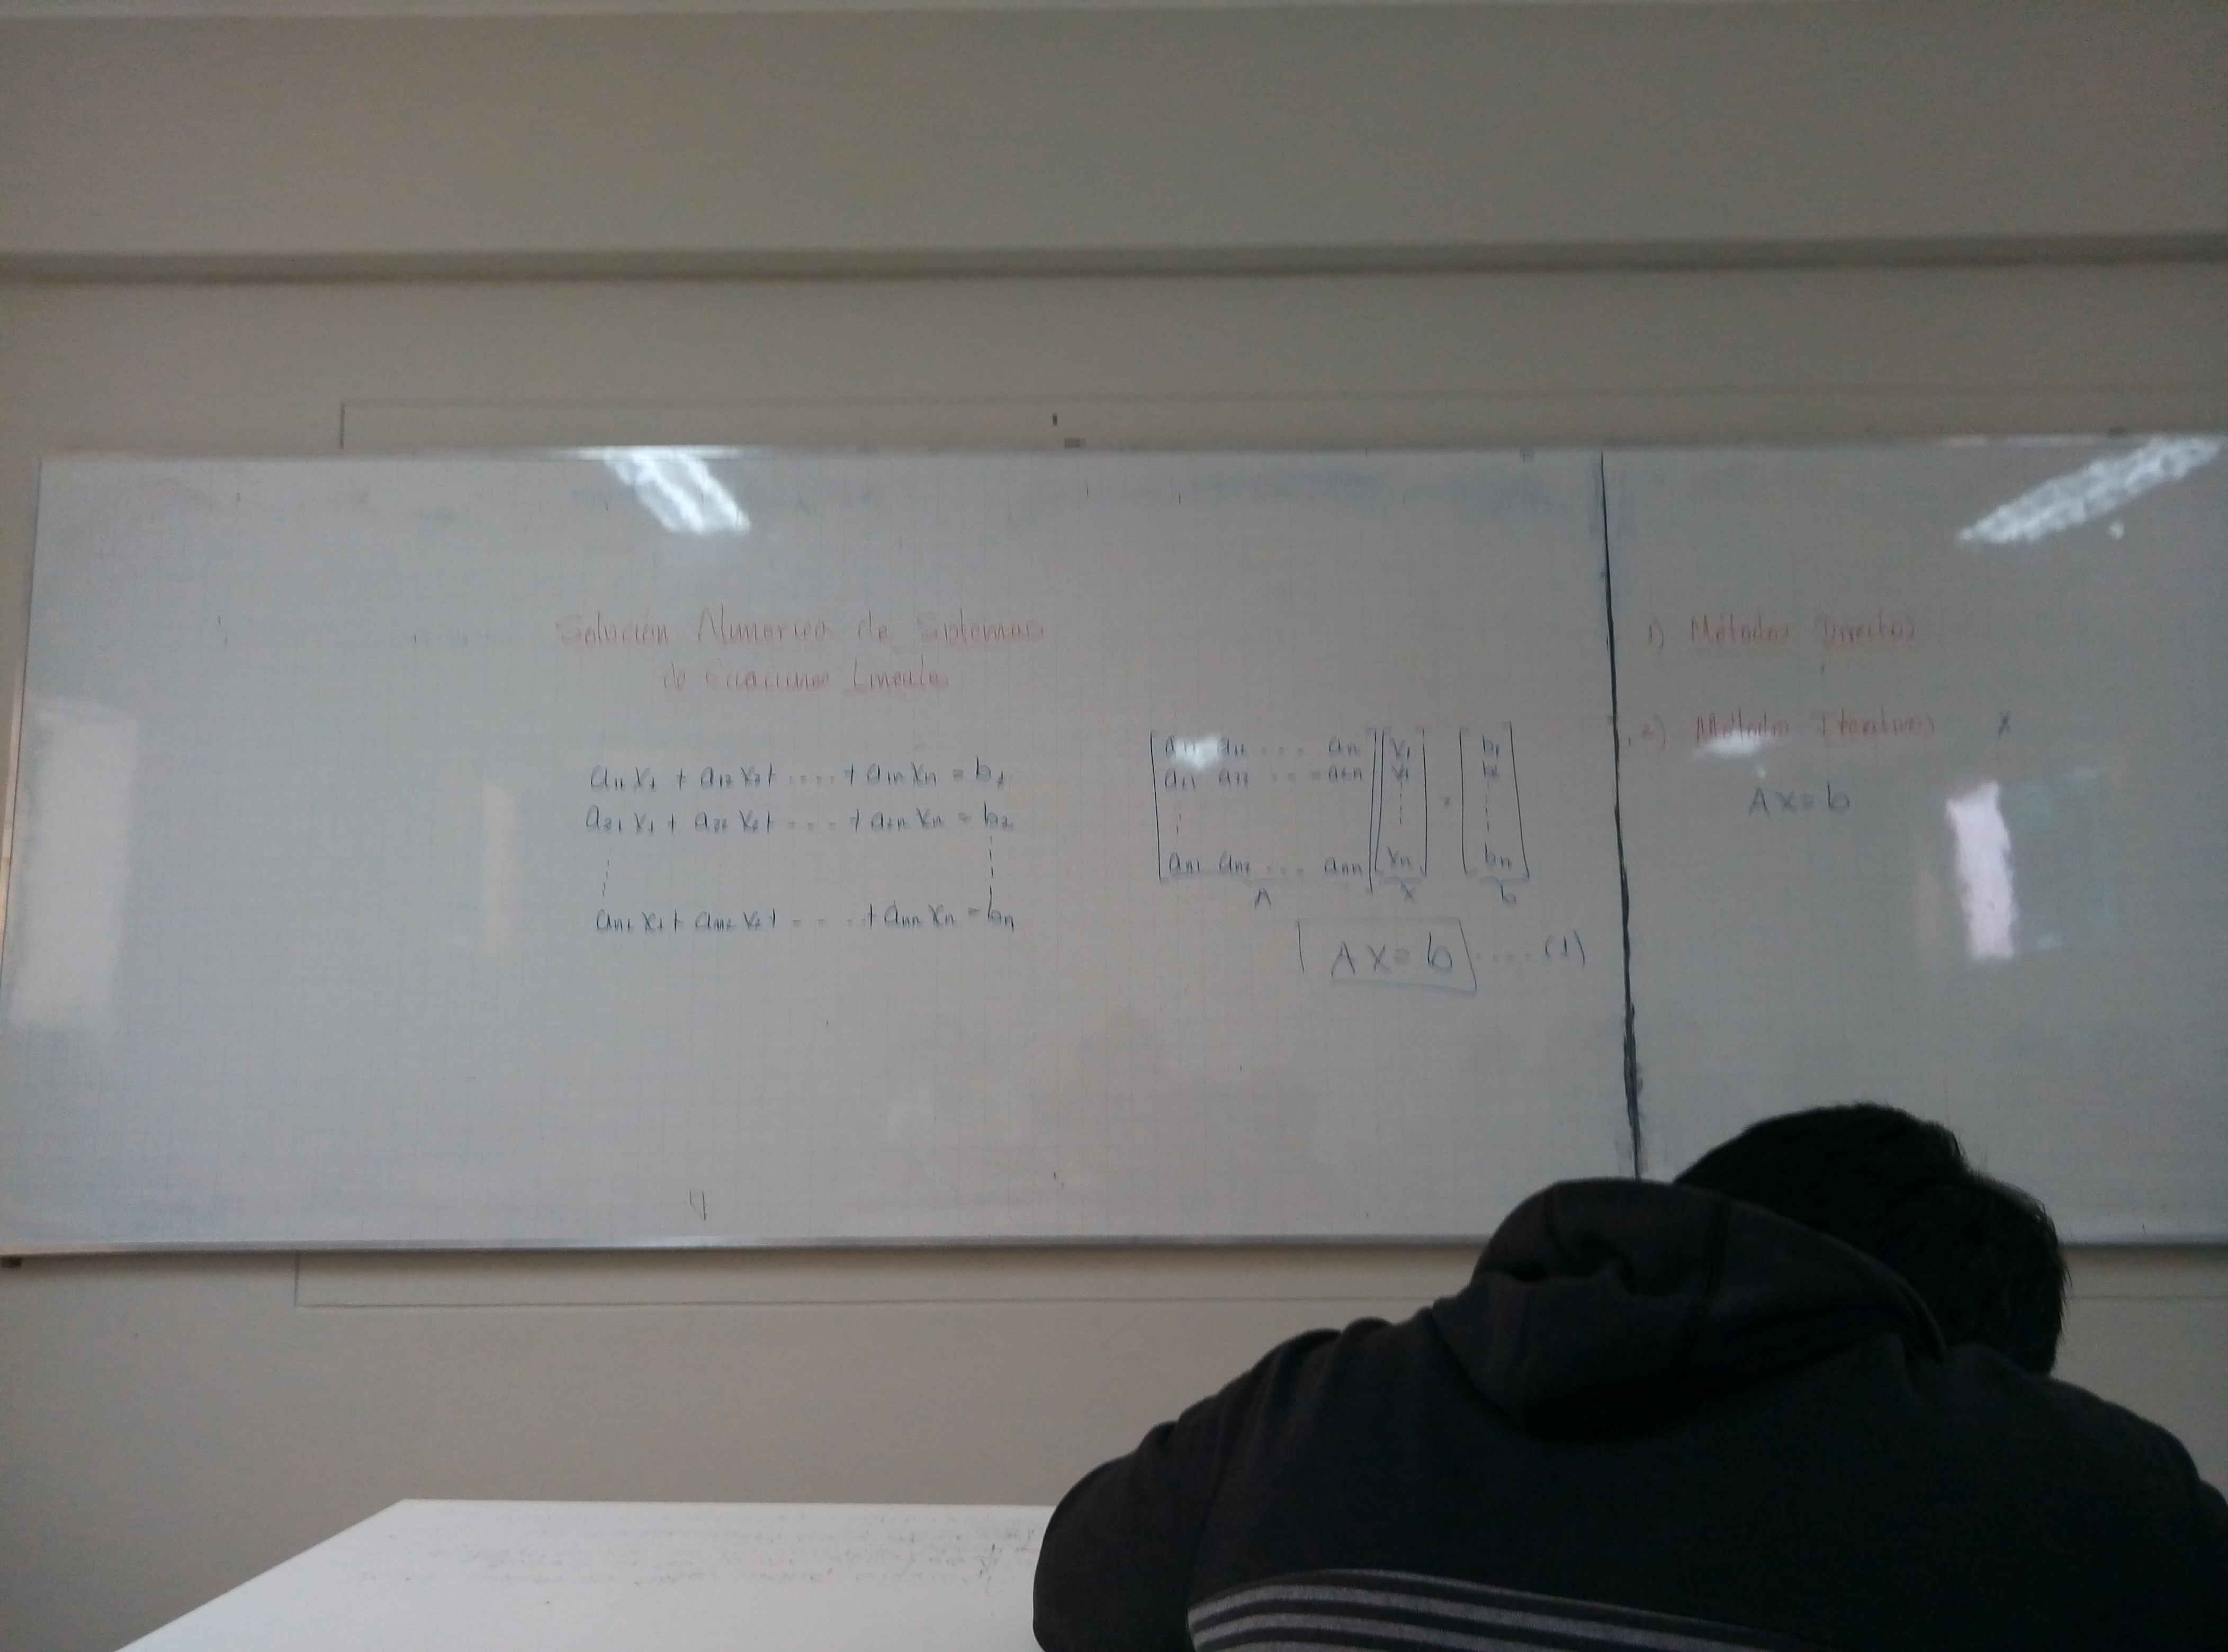 Solución Numérica de Sistemas
de Ecuaciones Lineales
a11 x1 + a12 x2 + .... + a1n xn = b1
a21 x1 + a22 x2 + .... + a2n xn = b2
an1 x1 + an2 x2 + .... + ann xn = bn
[a11 a12 .... a1n] [x1] = [b1]
a21 a22 .... a2n x2 b2
an1 an2 ... ann xn bn
A x b
Ax = b .... (1)
1) Métodos Directos
2) Métodos Iterativos x
Ax = b